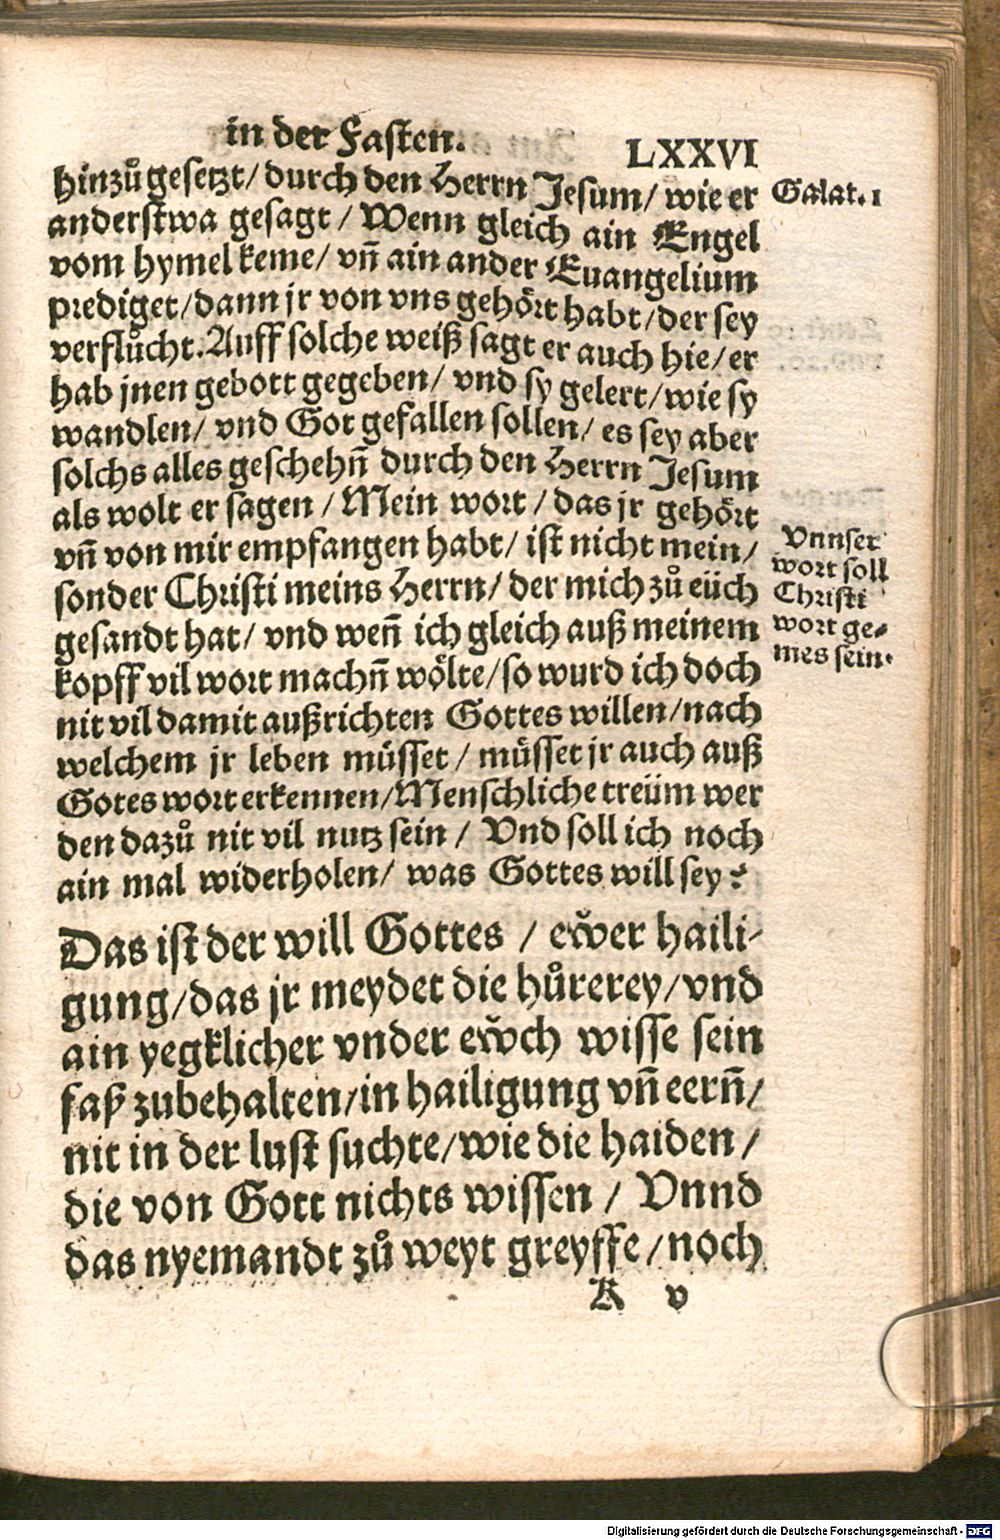 in der Fasten.
LXXVI
hinzů gesetzt/ durch den Herrn Jesum/ wie er
anderstwa gesagt / Wenn gleich ain Engel
vom hymel keme/ vñ ain ander Euangelium
prediget/dann jr von vns gehört habt/der sey
verflůcht. Auff solche weiß sagt er auch hie/er
hab jnen gebott gegeben/ vnd sy gelert/wie sy
wandlen/ vnd Got gefallen sollen/ es sey aber
solchs alles geschehñ durch den Herrn Jesum
als wolt er sagen / Mein wort / das jr gehört
vñ von mir empfangen habt/ ist nicht mein/
sonder Christi meins Herrn/ der mich zů eüch
gesandt hat/ vnd weñ ich gleich auß meinem
kopff vil wort machñ wölte/so wurd ich doch
nit vil damit außrichten Gottes willen/nach
welchem jr leben müsset / müsset jr auch auß
Gotes wort erkennen/Menschliche treüm wer
den dazů nit vil nutz sein / Vnd soll ich noch
ain mal widerholen/ was Gottes will sey?
Das ist der will Gottes / ew̌er haili-
gung/das jr meydet die hůrerey/vnd
ain yegklicher vnder ew̌ch wisse sein
faß zubehalten/in hailigung vñ eerñ/
nit in der lust suchte/wie die haiden/
die von Gott nichts wissen / Vnnd
das nyemandt zů weyt greyffe/noch
K v
Galat.1
Vnnser
wort soll
Christi
wort ge-
mes sein.
Digitalisierung gefördert durch die Deutsche Forschungsgemeinschaft - DFG